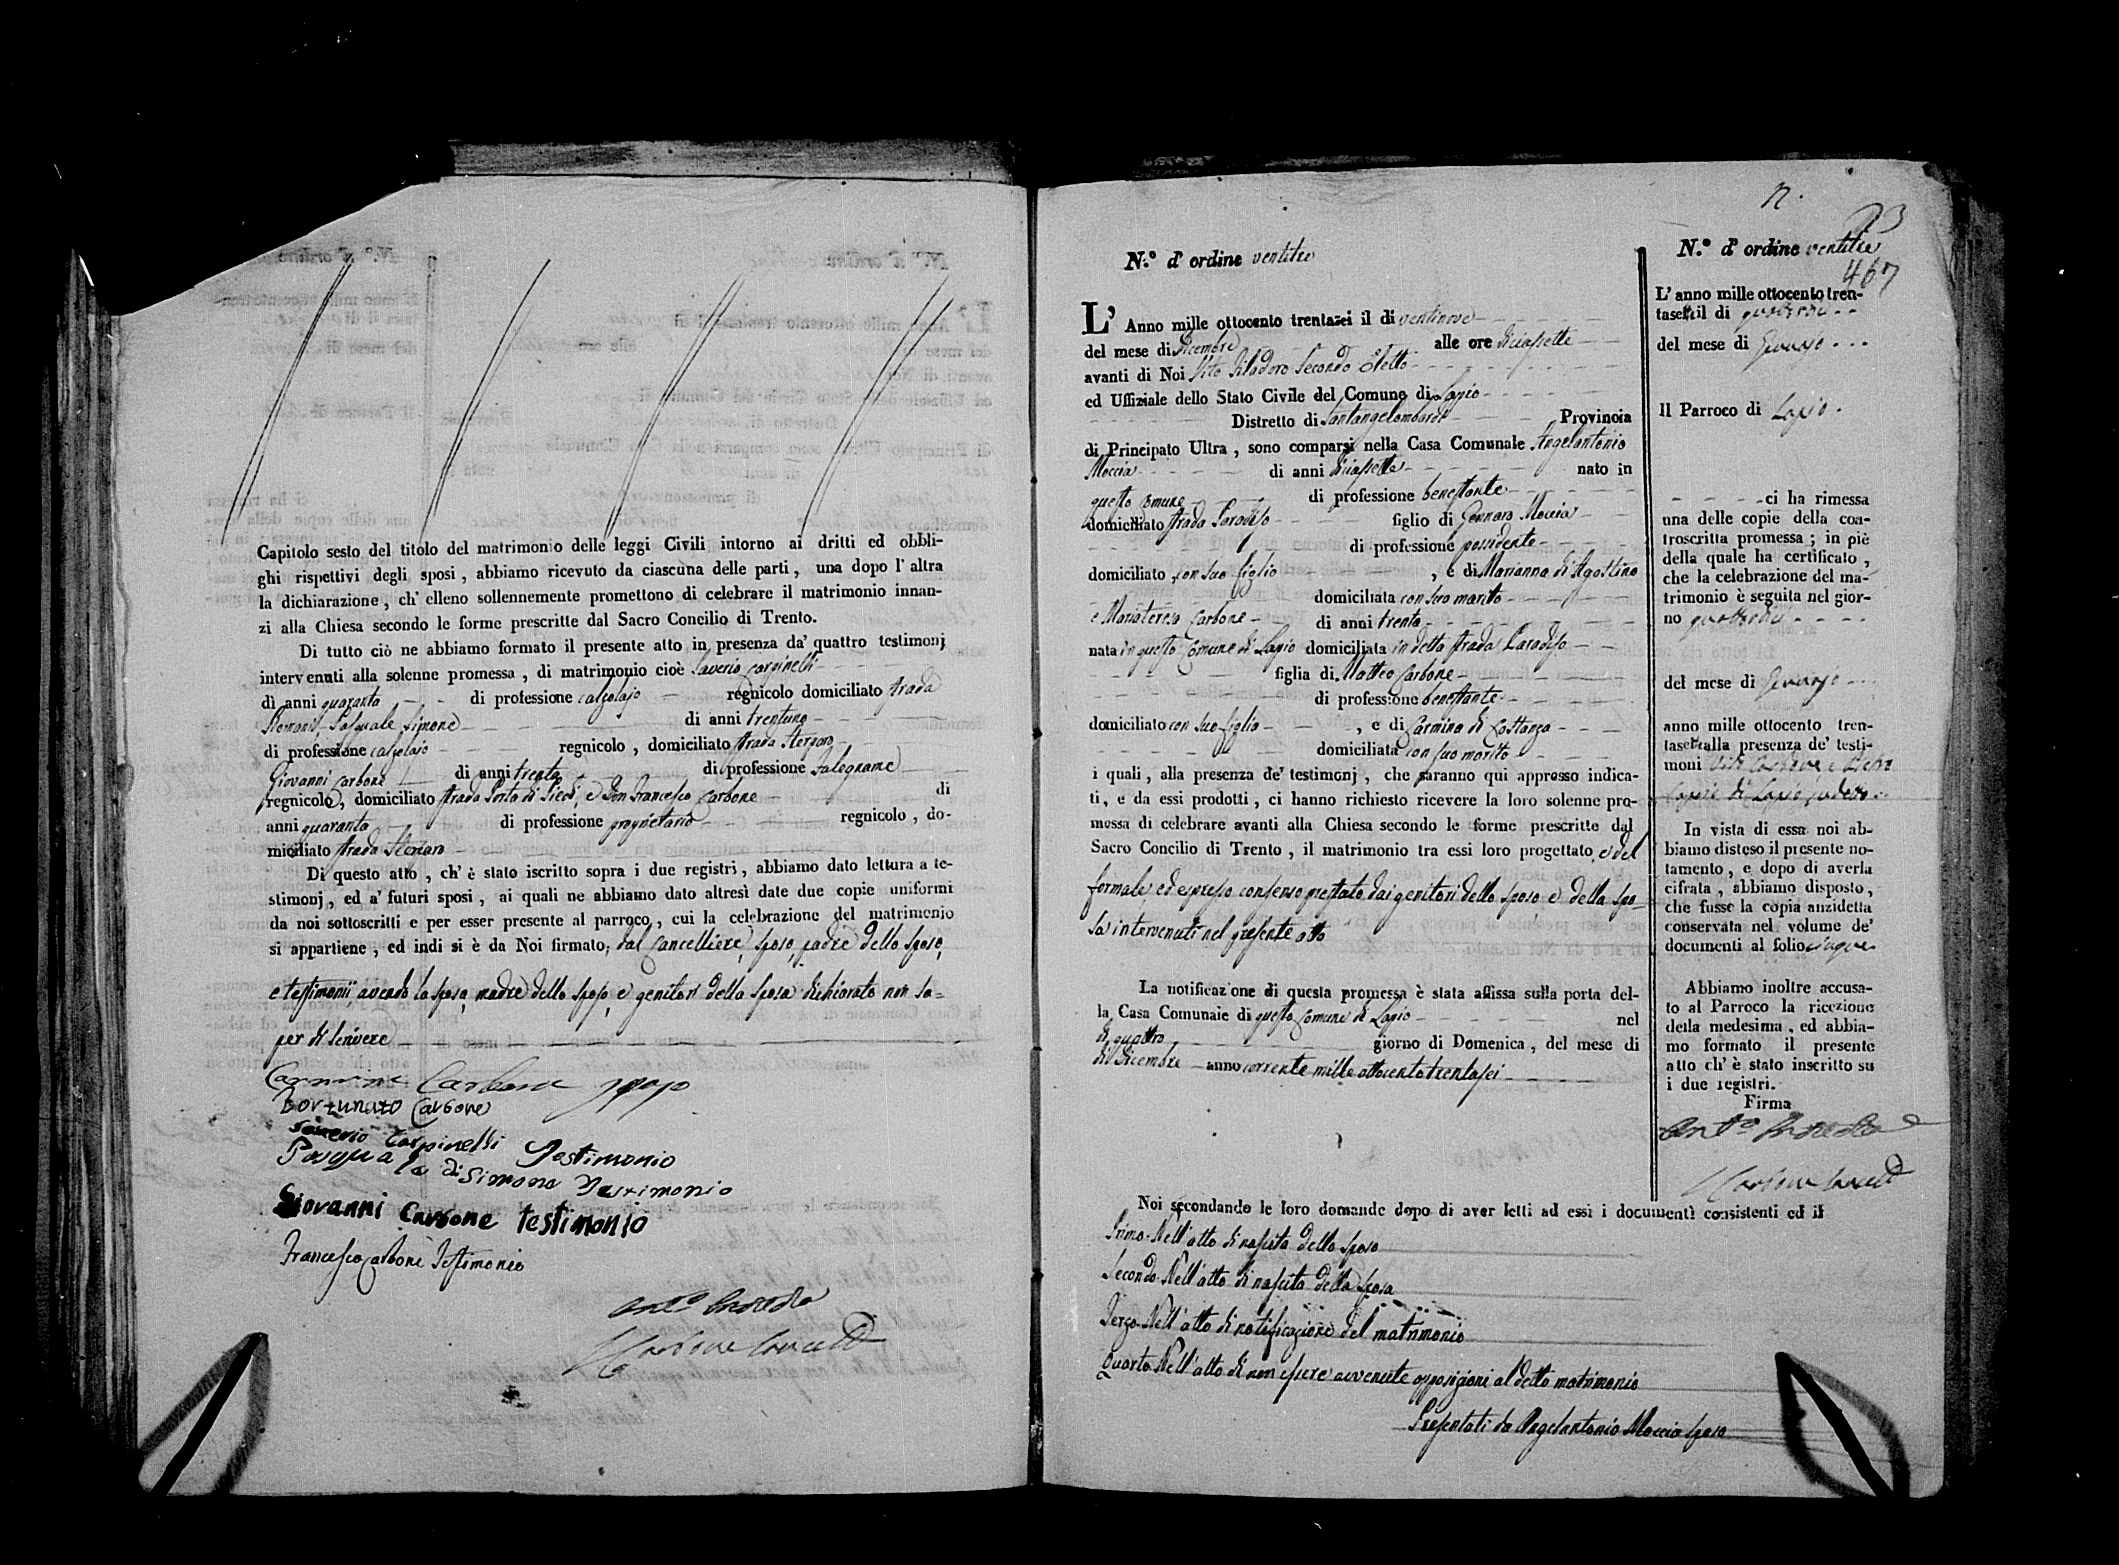 Capitolo sesto del titolo del matrimonio delle leggi Civili intorno ai dritti ed obbli-
ghi rispettivi degli sposi, abbiamo ricevuto da ciascuna delle parti, una dopo l'altra
la dichiarazione, ch'elleno sollennemente promettono di celebrare il matrimonio innan-
zi alla Chiesa secondo le forme prescritte dal Sacro Concilio di Trento.
Di tutto ciò ne abbiamo formato il presente atto in presenza da' quattro testimonj
intervenuti alla solenne promessa, di matrimonio cioè Saverio Carpinelli
di anni quaranta di professione calzolajo regnicolo domiciliato strada
Pasquale Simone di anni trentuno
di professione calzolajo regnicolo, domiciliato strada
Giovanni Carbone di anni trenta di professione Falegname
regnicolo, domiciliato strada Porta di e Don Francesco Carbone di
anni quaranta di professione proprietario regnicolo, do-
miciliato strada
Di questo atto, ch'è stato iscritto sopra i due registri, abbiamo dato lettura a te-
stimonj, ed a' futuri sposi, ai quali ne abbiamo dato altresì date due copie uniformi
da noi sottoscritti e per esser presente al parroco, cui la celebrazione del matrimonio
si appartiene, ed indi si è da Noi firmato, dal Cancelliere, sposo, padre dello sposo,
e testimonii, avendo la sposa, madre dello sposo, e genitori della sposa dichiarato non sa=
per di scrivere
Carmine Carbone sposo
Fortunato Carbone
Saverio Carpinelli Testimonio
Pasquale di Simone Testimonio
Giovanni Carbone testimonio
Francesco Carbone Testimonio
N.º d'ordine ventitre
L'Anno mille ottocento trentasei il di ventinove
del mese di Dicembre alle ore diciassette
avanti di Noi Vito Secondo Eletto
ed Uffiziale dello Stato Civile del Comune di Lapio
Distretto di Santangelombardi Provincia
di Principato Ultra, sono comparsi nella Casa Comunale Angelantonio
Moccia di anni diciassette nato in
questo Comune di professione benestante
domiciliato strada Paradiso figlio di Gennaro Moccia
di professione possidente
domiciliato con suo figlio, e di Marianna di Agostino
domiciliata con suo marito
e Mariateresa Carbone di anni trenta
nata in questo Comune di Lapio domiciliata in detta strada Paradiso
figlia di Matteo Carbone
di professione benestante
domiciliato con suo figlio, e di Carmina di Costanzo
domiciliata con suo marito
i quali, alla presenza de' testimonj, che saranno qui appresso indica-
ti, e da essi prodotti, ci hanno richiesto ricevere la loro solenne pro-
messa di celebrare avanti alla Chiesa secondo le forme prescritte dal
Sacro Concilio di Trento, il matrimonio tra essi loro progettato, e del
formale, ed espresso consenso prestato dai genitori dello sposo, e della spo=
sa intervenuti nel presente atto
La notificazione di questa promessa è stata affissa sulla porta del-
la Casa Comunale di questo Comune di Lapio nel
di quattro giorno di Domenica, del mese di
di Dicembre anno corrente mille ottocentotrentasei
Noi secondando le loro domande dopo di aver letti ad essi i documenti consistenti ed il
Primo. Nell'atto di nascita dello sposo
Secondo. Nell'atto di nascita della sposa
Terzo. Nell'atto di notificazione del matrimonio
Quarto. Nell'atto di non essere avvenute opposizioni al detto matrimonio
Presentati da Angelantonio Moccia sposo
23
N.º d'ordine ventitre
467
L'anno mille ottocento tren-
tasette il di quattordici
del mese di Gennajo
Il Parroco di Lapio
ci ha rimessa
una delle copie della con-
troscritta promessa; in piè
della quale ha certificato,
che la celebrazione del ma-
trimonio è seguita nel gior-
no quattordici
del mese di Gennajo
anno mille ottocento tren-
tasette alla presenza de' testi-
moni Vito Carbone e
di Lapio
In vista di essa noi ab-
biamo disteso il presente no-
tamento, e dopo di averla
cifrata, abbiamo disposto,
che fusse la copia anzidetta
conservata nel volume de'
documenti al folio cinque
Abbiamo inoltre accusa-
to al Parroco la ricezione
della medesima, ed abbia-
mo formato il presente
atto ch'è stato inscritto su
i due registri.
Firma